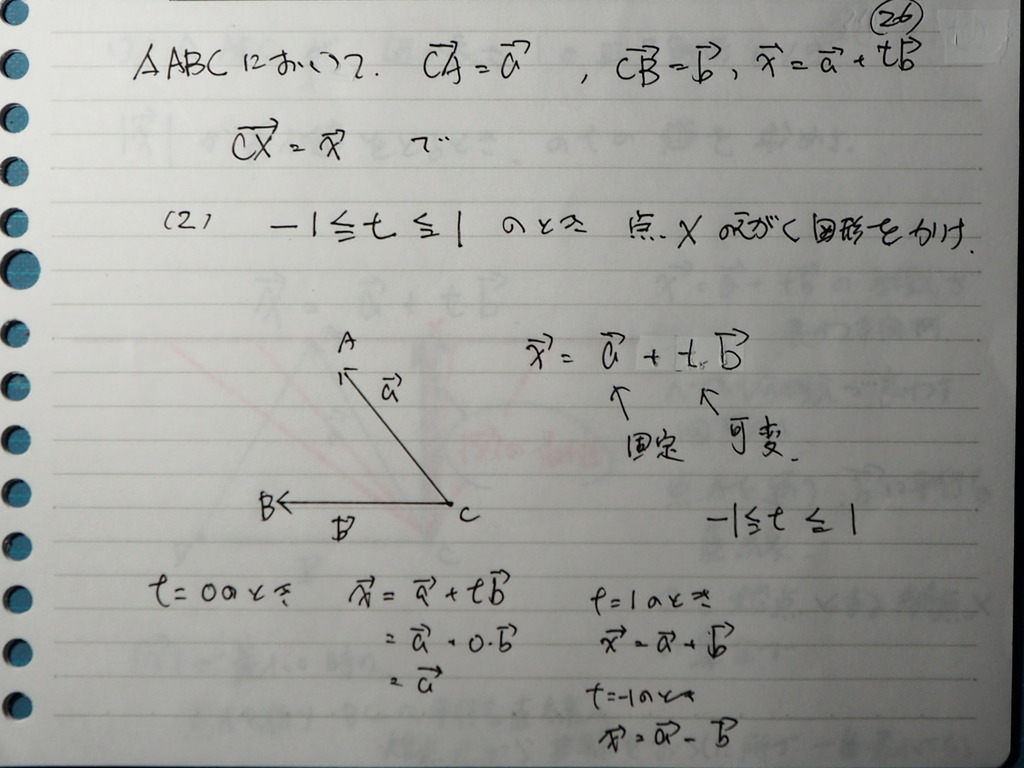 26
△ABCにおいて. CA→=a→ , CB→=b→, x→=a→+tb→
CX→=x→ で
(2) -1≦t≦1 のとき 点X のえがく図形をかけ.
A
a→
B
b→
C
x→ = a→ + t b→
↑ ↑
固定 可変.
-1≦t≦1
t=0のとき x→=a→+tb→
=a→+0・b→
=a→
t=1のとき
x→=a→+b→
t=-1のとき
x→=a→-b→